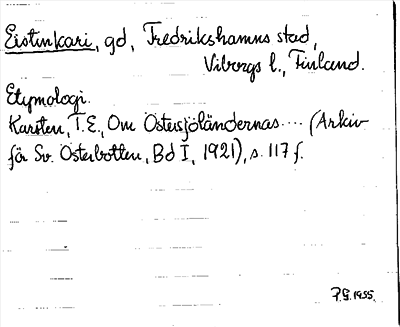 Eistinkari, gd, Fredrikshamns stad,
Viborgs l., Finland.
Etymologi.
Karsten, T.E., Om Östersjöländernas .... (Arkiv
för Sv. Österbotten, Bd I, 1921), s. 117 f.
1955